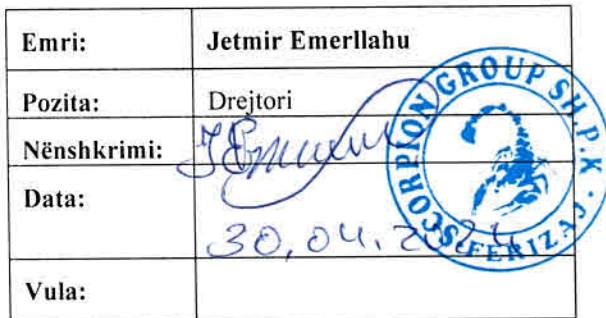 Emri: Jetmir Emerllahu
Pozita: Drejtori
Nënshkrimi:
Data: 30.04.2024
Vula:
SCORPION GROUP SH.P.K. FERIZAJ.